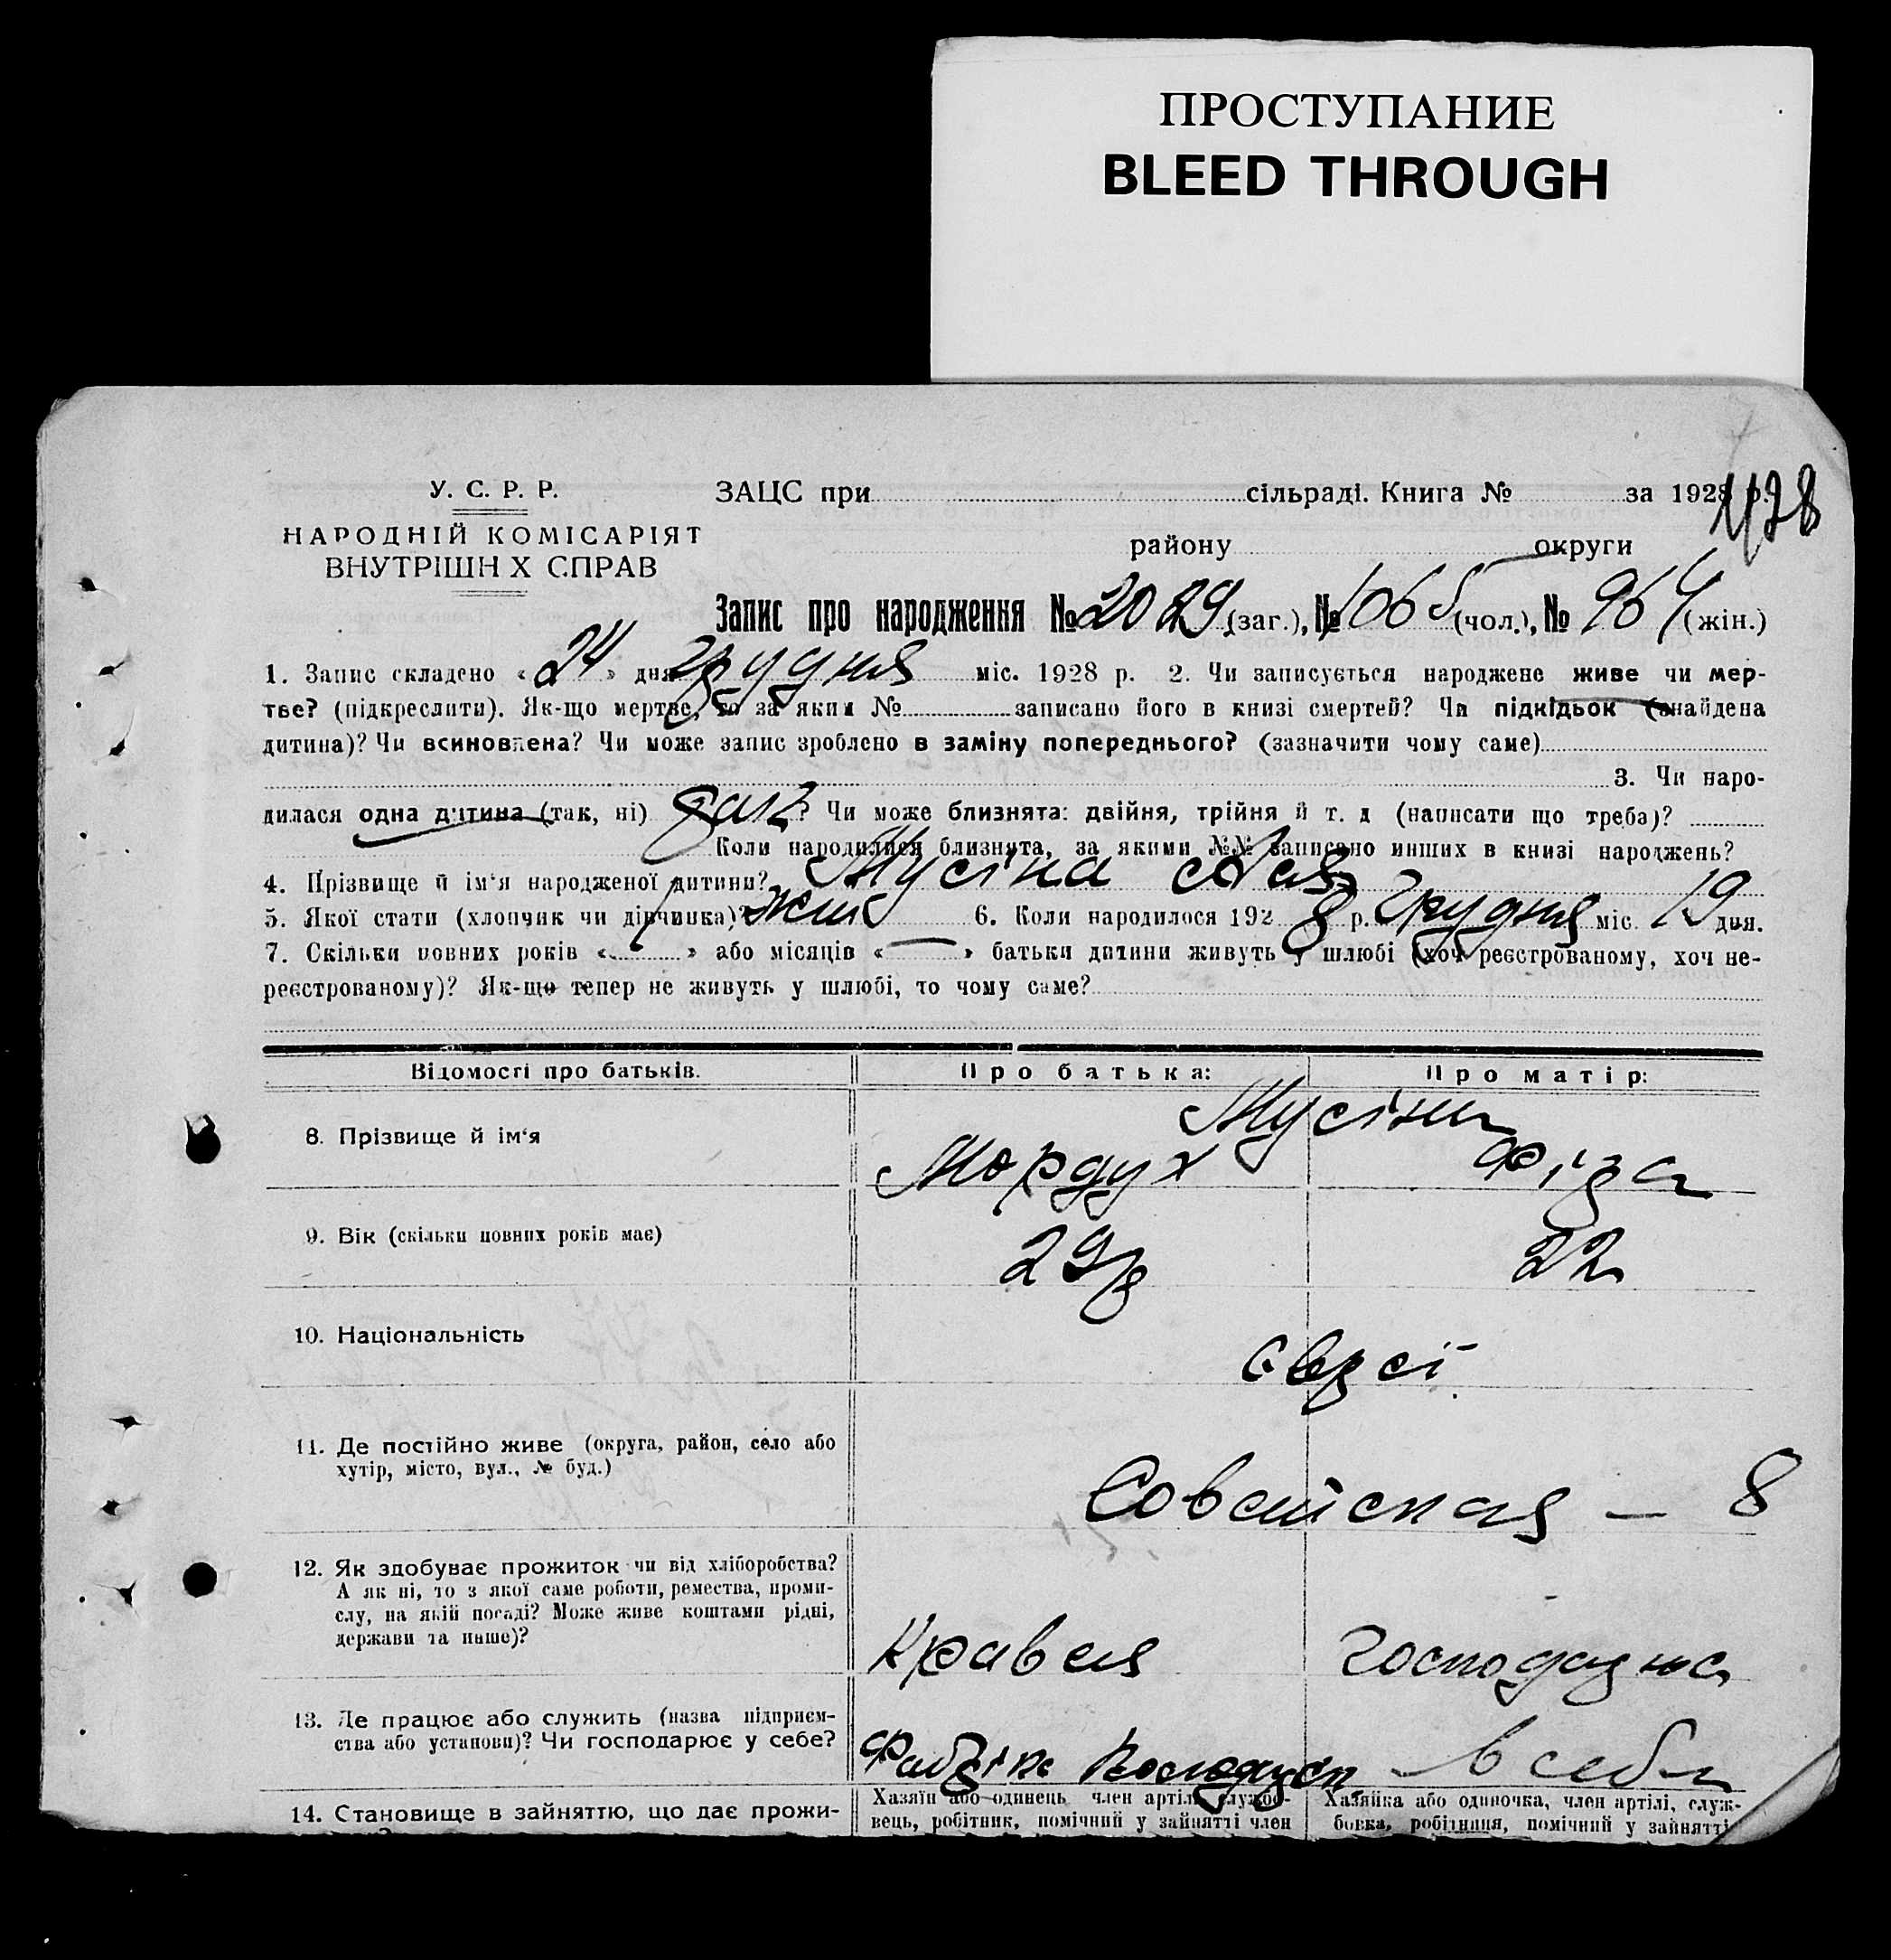 ПРОСТУПАНИЕ
BLEED THROUGH
У. С. Р. Р.
НАРОДНІЙ КОМІСАРІЯТ
ВНУТРІШН Х СПРАВ
ЗАЦС при сільраді. Книга № за 1928 р.
району округи
Запис про народження № 2029 (заг.), № 1065 (чол.), № 964 (жін.)
1. Запис складено « 24 » дня грудня міс. 1928 р. 2. Чи записується народжене живе чи мер-
тве? (підкреслити). Як-що мертве, то за яким № записано його в книзі смертей? Чи підкідьок (знайдена
дитина)? Чи всиновлена? Чи може запис зроблено в заміну попереднього? (зазначити чому саме)
3. Чи наро-
дилася одна дитина (так, ні) так? Чи може близнята: двійня, трійня й т. д (написати що треба)?
Коли народилися близнята, за якими №№ записано инших в книзі народжень?
4. Прізвище й ім'я народженої дитини? Мусіна
5. Якої стати (хлопчик чи дівчинка)? жін 6. Коли народилося 1928 р. Грудня міс. 19 дня.
7. Скільки повних років « » або місяців « — » батьки дитини живуть у шлюбі (хоч реєстрованому, хоч не-
реєстрованому)? Як-що тепер не живуть у шлюбі, то чому саме?
Відомості про батьків. Про батька: Про матір:
Мусіни
8. Прізвище й ім'я Мордух Фіза
9. Вік (скільки повних років має) 29р 22
10. Національність євреї
11. Де постійно живе (округа, район, село або
хутір, місто, вул., № буд.)
Советская — 8
12. Як здобуває прожиток чи від хліборобства?
А як ні, то з якої саме роботи, ремества, проми-
слу, на якій посаді? Може живе коштами рідні,
держави та инше)?
Кравець
13. Де працює або служить (назва підприєм-
ства або установи)? Чи господарює у себе?
Фабріка в себе
14. Становище в зайняттю, що дає прожи-
Хазяїн або одинець член артілі службо-
вець, робітник, помічний у зайнятті член
Хазяйка або одиночка, член артілі, служ-
бовка, робітниця, помічний у зайнятті